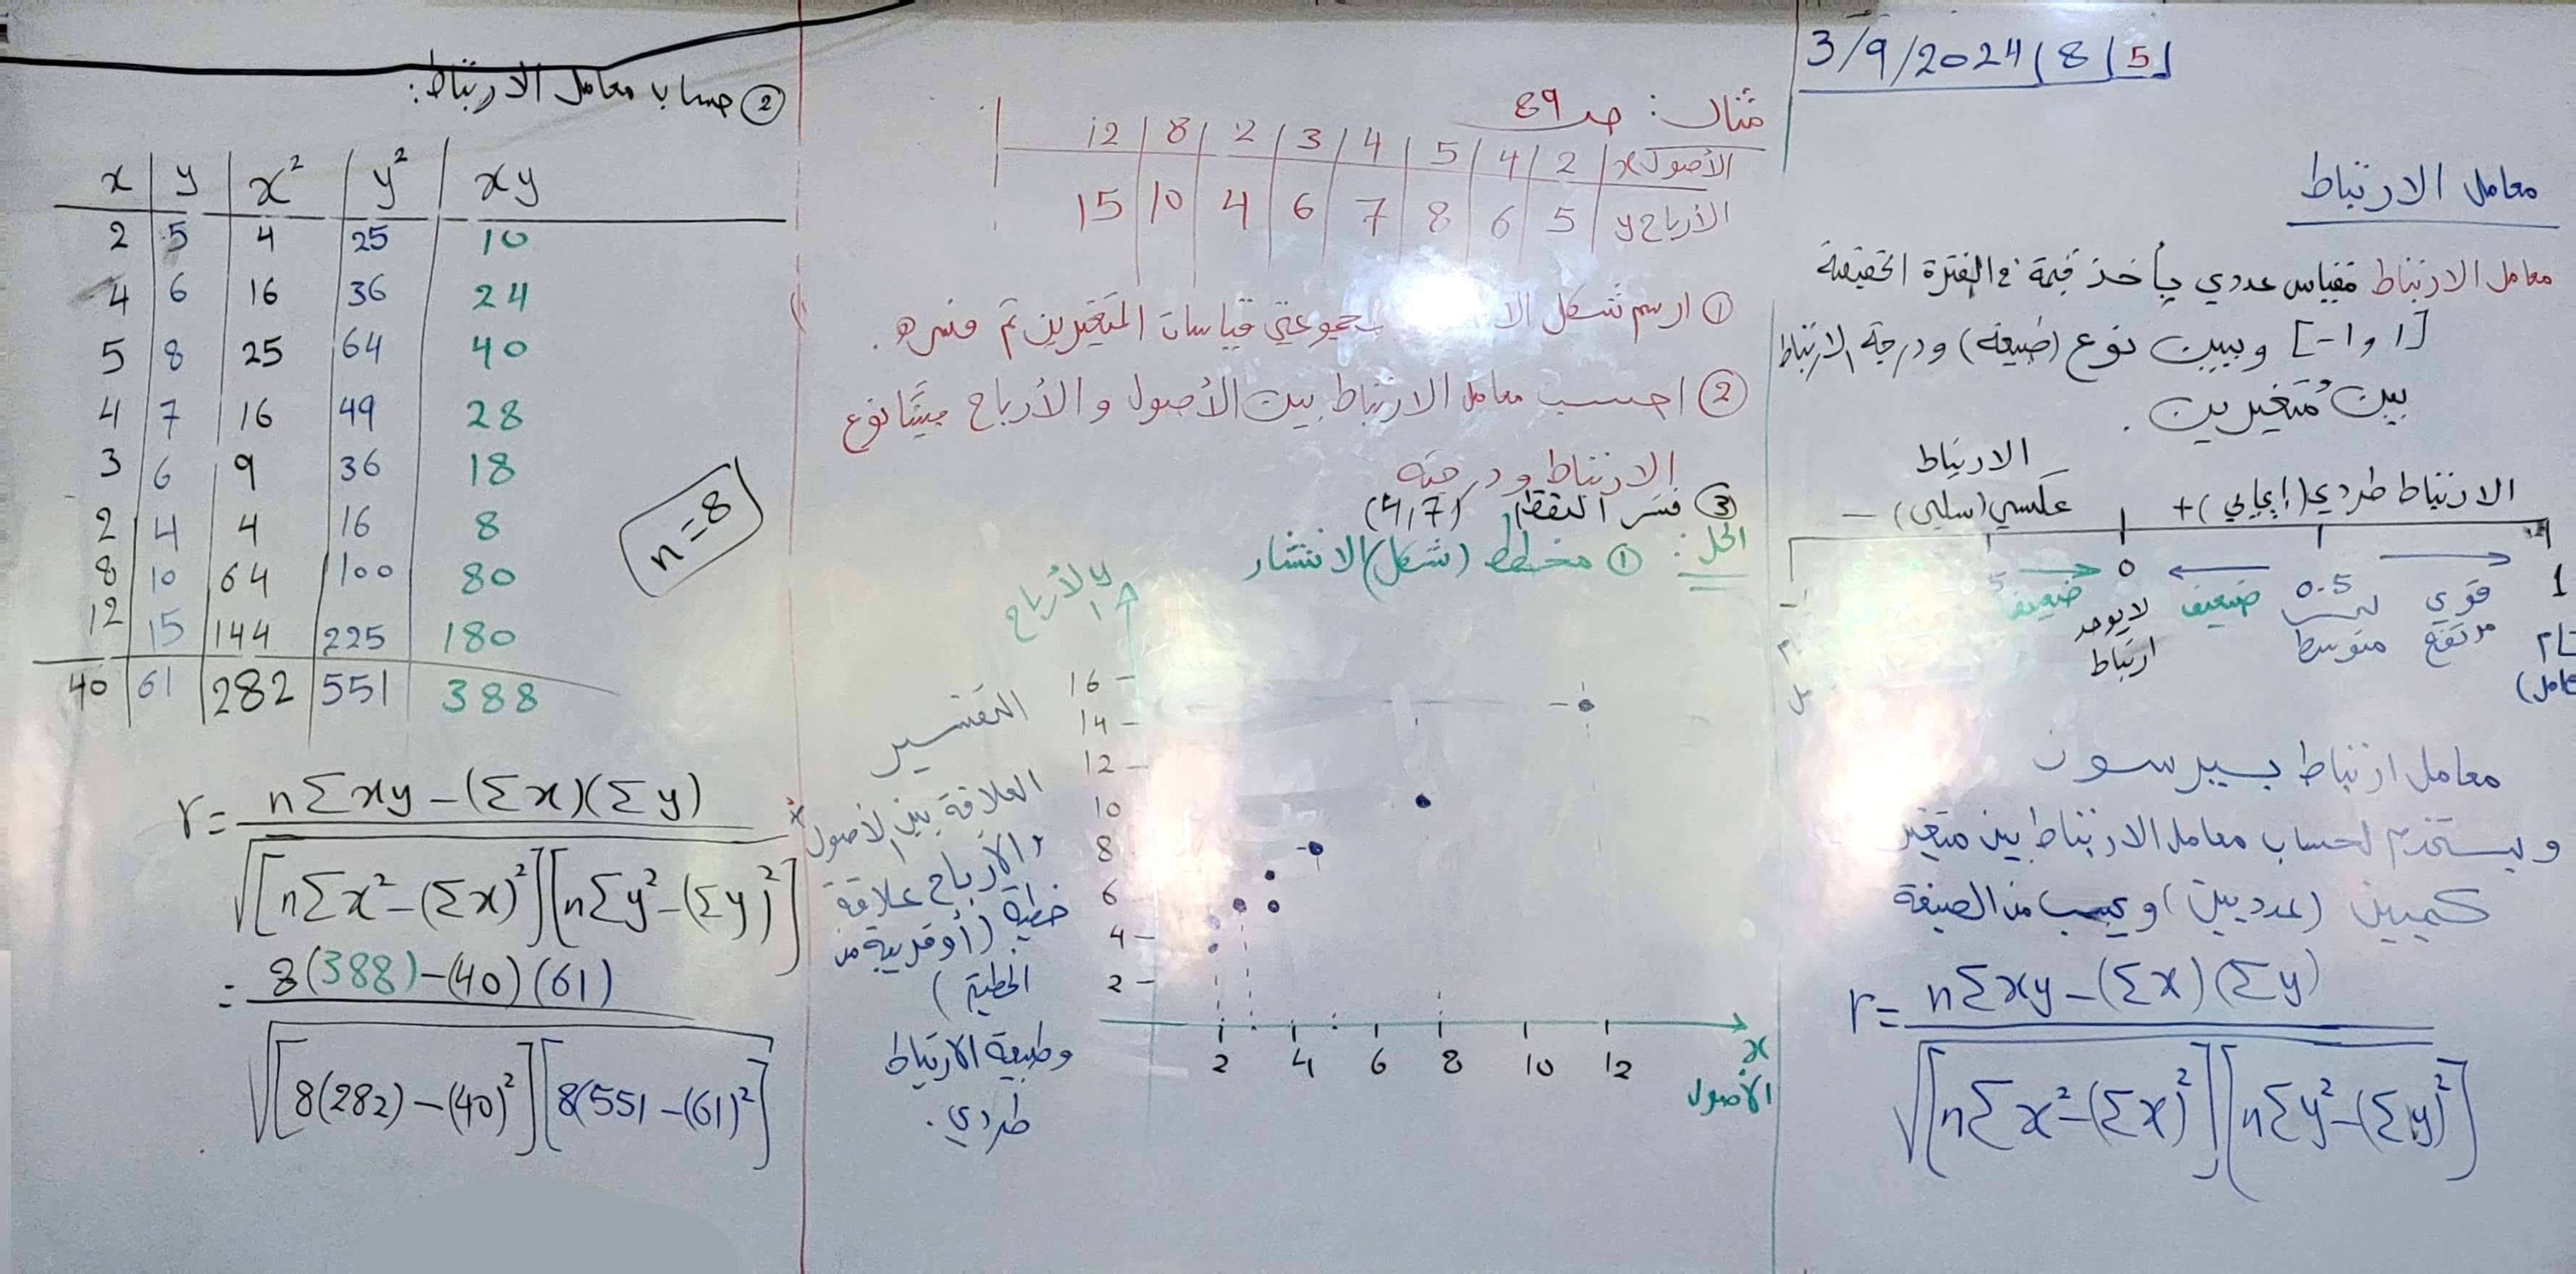 3/9/2024 | 8 | 5
معامل الارتباط
معامل الارتباط مقياس عددي يأخذ قيمة في الفترة الحقيقية
[-1 و 1] ويبين نوع (طبيعة) ودرجة الارتباط
بين مُتغيرين .
الارتباط طردي (إيجابي) +
الارتباط
عكسي (سلبي) -
0
0.5
1
ضعيف
ضعيف
قوي
لا يوجد
ارتباط
متوسط
مرتفع
تام
معامل ارتباط بيرسون
ويستخدم لحساب معامل الارتباط بين متغير
كميين (عدديين) ويحسب من الصيغة
r = n∑xy - (∑x)(∑y)
√[n∑x² - (∑x)²][n∑y² - (∑y)²]
مثال : صـ 89
الأصول x | 2 | 4 | 5 | 4 | 3 | 2 | 8 | 12
الأرباح y | 5 | 6 | 8 | 7 | 6 | 4 | 10 | 15
① ارسم شكل الا لمجموعتي قياسات المتغيرين ثم فسره .
② احسب معامل الارتباط بين الأصول و الأرباح مبيّنًا نوع
الارتباط ودرجته
③ فسر النقطة (4,7)
الحل : ① مخطط (شكل) الانتشار
y الأرباح
16
14
12
10
8
6
4
2
2 4 6 8 10 12
x
الأصول
التفسير
العلاقة بين الأصول
والأرباح علاقة
خطية (أو قريبة من
الخطية)
وطبيعة الارتباط
طردي .
② حساب معامل الارتباط :
x | y | x² | y² | xy
2 | 5 | 4 | 25 | 10
4 | 6 | 16 | 36 | 24
5 | 8 | 25 | 64 | 40
4 | 7 | 16 | 49 | 28
3 | 6 | 9 | 36 | 18
2 | 4 | 4 | 16 | 8
8 | 10 | 64 | 100 | 80
12 | 15 | 144 | 225 | 180
40 | 61 | 282 | 551 | 388
n=8
r = n∑xy - (∑x)(∑y)
√[n∑x² - (∑x)²][n∑y² - (∑y)²]
= 8(388) - (40)(61)
√[8(282) - (40)²][8(551 - (61)²]